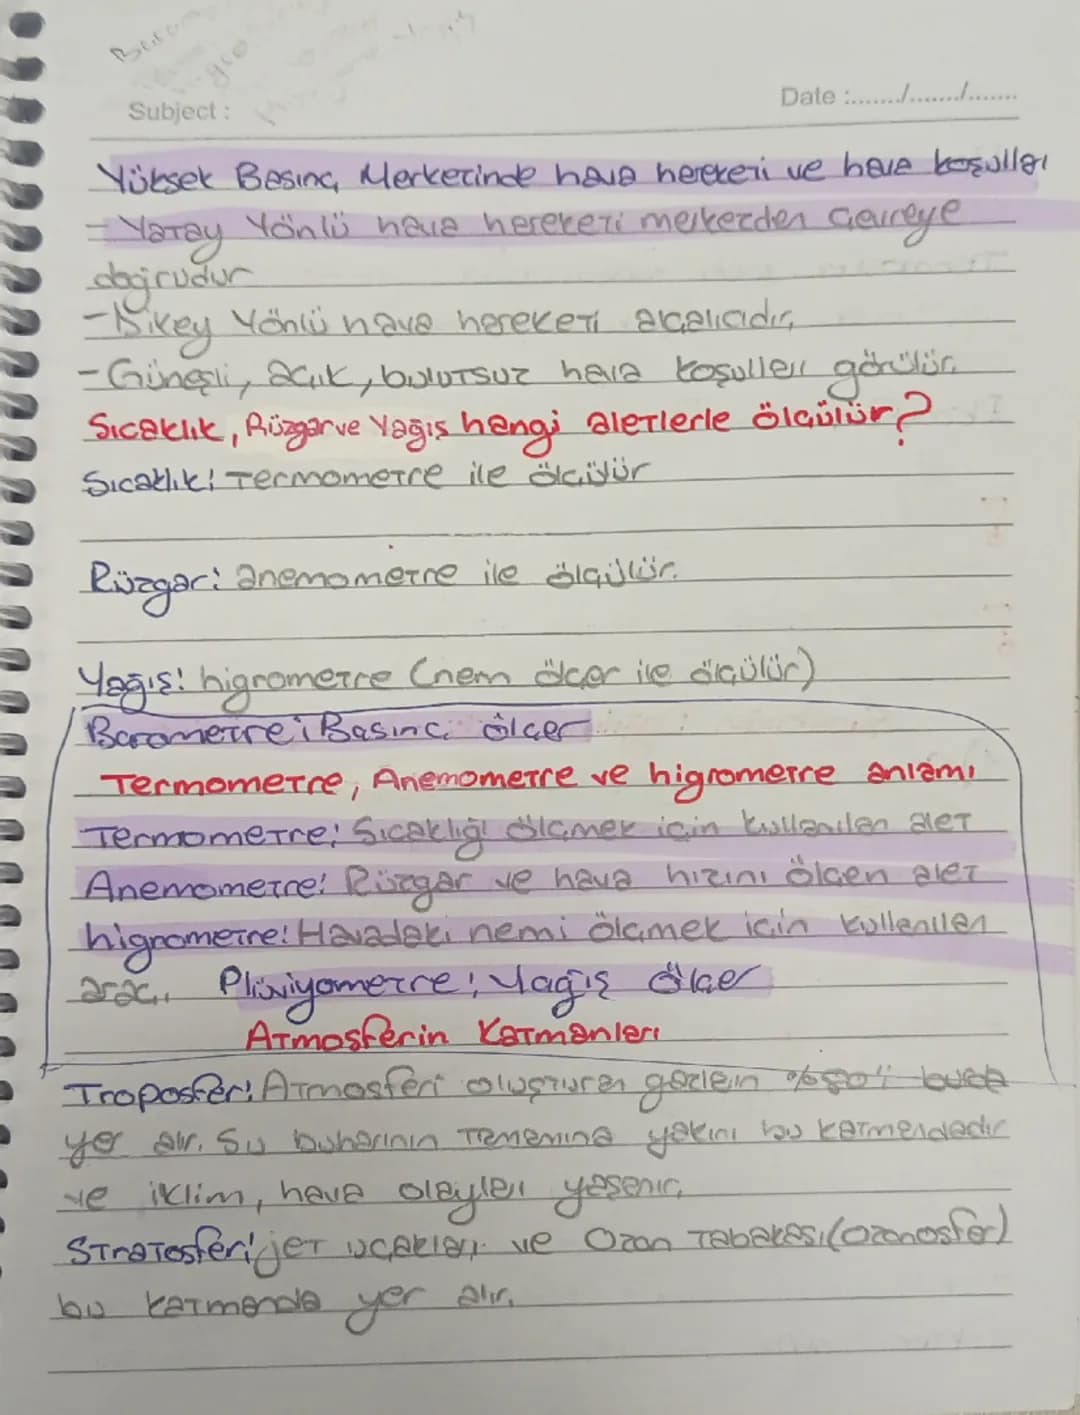 Subject :
Date :......./......./.......
Yüksek Basınç Merkezinde hava hareketi ve hava koşulları
- Yatay Yönlü hava hareketi merkezden çevreye
doğrudur
- Dikey Yönlü hava hareketi alçalıcıdır,
- Güneşli, açık, bulutsuz hava koşulları görülür.
Sıcaklık, Rüzgar ve Yağış hangi aletlerle ölçülür?
Sıcaklık: Termometre ile ölçülür
Rüzgar: anemometre ile ölçülür.
Yağış: higrometre (nem ölçer ile ölçülür)
Barometre: Basınç ölçer
Termometre, Anemometre ve higrometre anlamı
Termometre: Sıcaklığı ölçmek için kullanılan alet
Anemometre: Rüzgar ve hava hızını ölçen alet
higrometre: Havadaki nemi ölçmek için kullanılan
araç. Plüviyometre: Yağış Ölçer
Atmosferin Katmanları
Troposfer: Atmosferi oluşturan gazların burda
yer alır. Su buharının tamamına yakını bu katmandadır
ve iklim, hava olayları yaşanır.
Stratosfer: jet uçakları ve Ozan Tabakası (Ozonosfer)
bu katmanda yer alır.